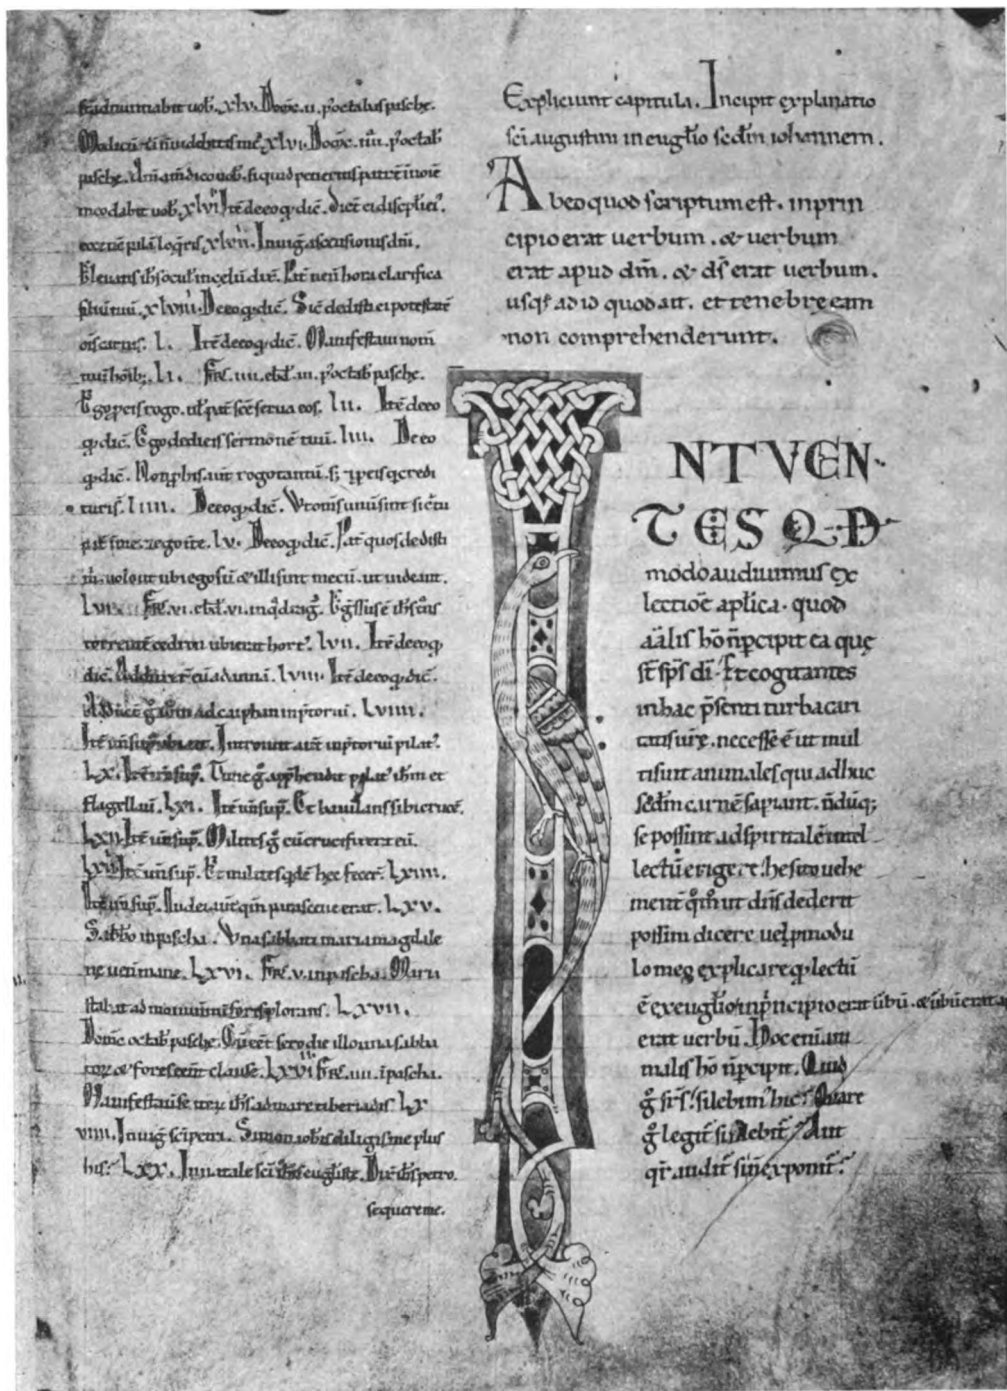 adnuntiabit uoƀ. xlv. Domc̄. ii. p̄ octabas pasche.
Modicū & iā ñ uidebitis me. xlvi. Domc̄. iiii. p̄ octab̄
pasche. Am̄ am̄ dico uoƀ. si quid petieritis patrē in noīe
meo dabit uoƀ. xlvi Itē de eo q̣ dic̄. Dic̄t ei discipli ei.
ecce nc̄ palā loq̄ris. xlvii. In uig̃ ascensionis dn̄i.
Eleuans ih̄s ocul in celū dix̄. Pat̄ uen̄ hora clarifica
filiū tuū. xlviiii. De eo q̣ dic̄. Sic̄ dedisti ei potestatē
om̄s carnis. l. Itē de eo q̣ dic̄. Manifestaui nom̄
tuū hoīb;. li. Fr̄. iiii. ebd. iii. p̄ octab̄ pasche.
Ego p eis rogo. uſ. pat̄ sc̄e serua eos. lii. Itē de eo
q̣ dic̄. Ego dedi eis sermonē tuū. liii. De eo
q̣ dic̄. Non p his aut̄ rogo tantū. s; & p eis q̣ credi
turi s̄. liiii. De eo q̣ dic̄. Vt om̄s unū sint sic̄ tu
pat̄ in me. & ego in te. lv. De eo q̣ dic̄. Pat̄ quos dedisti
m̄. uolo ut ubi ego sū & illi sint mecū. ut uideant.
lvi. Fr̄. vi. ebd. vi. in q̄drag̃. Egr̄ssus ē ih̄s t̄ns
torrentē cedron ubi erat hort'. lvii. Itē de eo q̣
dic̄. Adduxer̄ eū ad annā. lviii. Itē de eo q̣ dic̄.
Adduc̄t g̊ ih̄m ad caiphan in p̄toriū. lviiii.
Itē un̄ sup̄. Introiuit aut̄ in p̄toriū pilat'.
lx. Itē un̄ sup̄. Tunc g̊ app̄hendit pilat' ih̄m et
flagellauī. lxi. Itē un̄ sup̄. Et baiulans sibi crucē.
lxii. Itē un̄ sup̄. Milites g̊ cū crucifixerēt eū.
lxiii. Itē un̄ sup̄. Et milites q̄dē hec fecer̄. lxiiii.
Itē un̄ sup̄. Iudei aut̄ qm̄ parasceue erat. lxv.
Sabb̄o in pascha. Vna sabbati maria magdale
ne uenit mane. lxvi. Fr̄. v. in pascha. Maria
stabat ad monum̄tū foris plorans. lxvii.
Domc̄ octab̄ pasche. Cū eēt sero die illo una sabba
torū & fores eēnt clause. lxviii. Fr̄. iiii. in pascha.
Manifestauit se iterū ih̄s ad mare tiberiadis. lx
viiii. In uig̃ sc̄i petri. Simon iohis diligis me plus
his? lxx. In natale sc̄i ioh̄is eugl̄iste. Dix̄ ih̄s petro.
sequere me.
Expliciunt capitula. Incipit explanatio
sc̄i augustini in eugl̄io sed̄m iohannem.
Ab eo quod scriptum est. inprin
cipio erat uerbum. & uerbum
erat apud dm̄. & ds̄ erat uerbum.
usq; ad id quod ait. et tenebre eam
non comprehenderunt.
INTVEN
TES QD
modo audiuimus ex
lectioē aplica. quod
aīalis hō n̄ pcipit ea quę
st̄ sp̄s dī. Et cogitantes
in hac p̄senti turba cari
tatis ur̄e. necesse ē ut mul
ti sint animales qui adhuc
sed̄m carnē sapiant. n̄dūq;
se possint ad spiritalē intel
lectū erigere. hesito uehe
ment̄ qm̄o ut dn̄s dederit
possim dicere uel p modu
lo meo explicare q̣ lectū
ē ex eugl̄io. in p̄ncipio erat ūbū. & ūbū erat ap
erat uerbū. Hoc enim ani
malis hō n̄ pcipit. Quid
g̊ fr̄s? silebim' hic? Quare
g̊ legit̄ si silebit̄? Aut
qr̄ audit̄ si n̄ exponit̄?